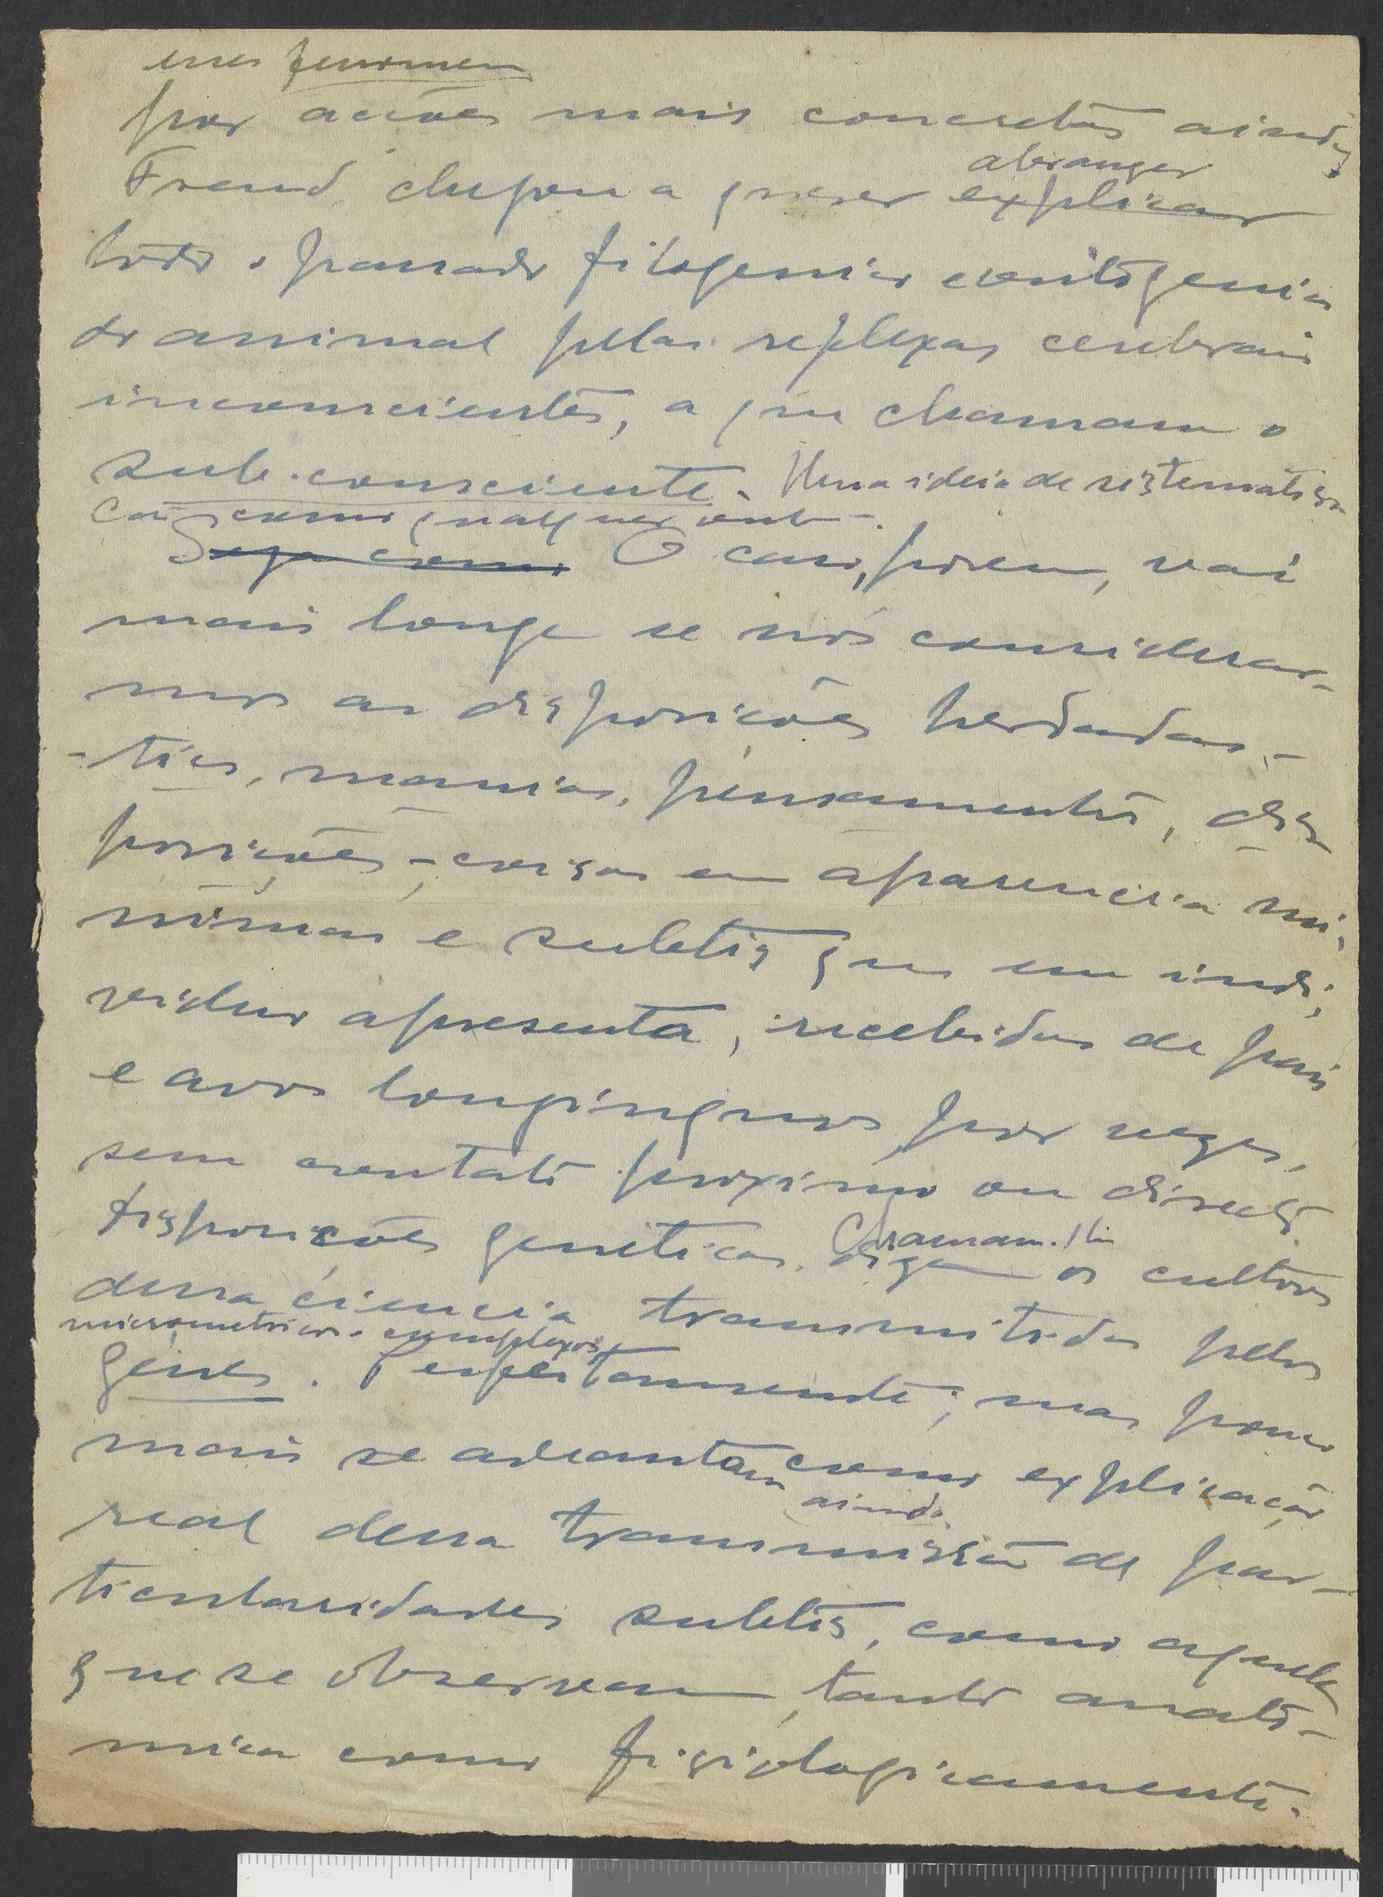 esses fenomen
por acções mais concretas ainda,
abranger
Freud chegou a querer explicar
todo o passado filogenico e ontogenico
do animal pelas reflexas cerebrais
inconscientes, a que chamam o
sub-consciente. Uma ideia de sistematisa-
ção, como qualquer outr
Seja como O caso, porem, vai
mais longe se nós considerar-
mos as disposições herdadas, -
- tics, manias, pensamentos, dis-
posições -, coisas em aparencia mi-
nimas e subtis que um indi-
viduo apresenta, recebidas de pais
e avós longinquos por vezes,
sem contato proximo ou directo.
Chamam-lhe
disposições geneticas, os cultores
dessa ciencia transmitidas pelos
micrometricos e complexos
genes. Perfeitamente; mas pouco
mais se adeantam como explicação
ainda
real dessa transmissão de par-
ticularidades subtis, como aquelas
que se observam, tanto anató-
mica como fisiologicamente.